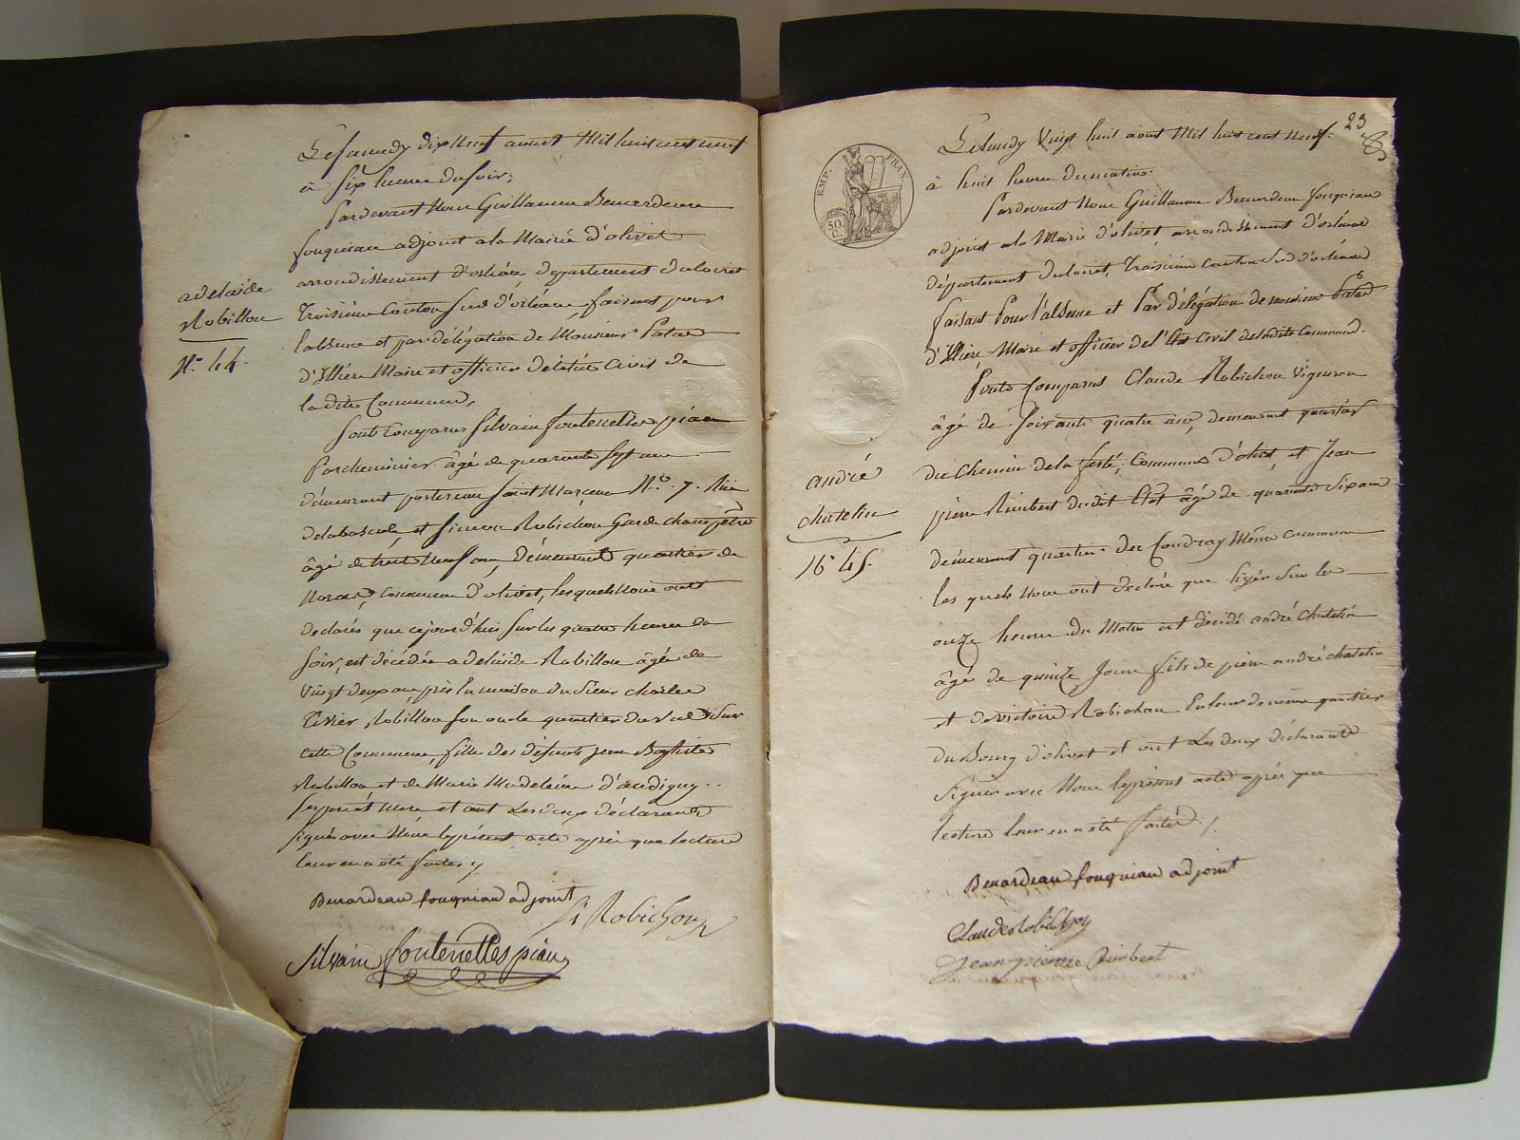 Le samedy dix neuf aoust Mil huit cent neuf
à six heure du soir;
Pardevant Nous Guillaume Benardeau
fouqueau adjoint a la Mairie d'olivet
arrondissement d'orléans, departement du loiret
Troisième Canton Sud d'orléans faisant pour
l'absence et par délégation de Monsieur Patas
d'Illiers Maire et officier de l'état Civil de
la dite Commune,
Sont Comparus Silvain fontenelles piau
Parcheminier âgé de quarante sept ans
demeurant portereau Saint Marceau N.º 7. Rue
de la bascule, et Simon Robichon Garde champêtre
âgé de trente neuf ans, demeurant quartier de
commune d'olivet, lesquels Nous ont
declarés que cejourd'hui sur les quatre heures du
soir, est décédée adelaide Robillou âgée de
vingt deux ans près la maison du sieur charles
Robillou son oncle quartier du val sur
cette Commune, fille des défunts jean Baptiste
Robillou et de Marie Madeleine d'audigny
ses père et Mere et ont les deux déclarants
signé avec Nous le présent acte après que lecture
leur en a été faite
Benardeau fouqueau adjoint
Si Robichon
Silvain fontenelles piau
adelaide
Robillou
N.º 44.
23
Le lundy Vingt huit aoust Mil huit cent neuf.
à huit heure du matin.
Pardevant Nous Guillaume Benardeau fouqueau
adjoint a la Mairie d'olivet, arrondissement d'orléans
département du loiret, Troisième Canton Sud d'orléans
faisant Pour l'absence et Par délégation de monsieur Patas
d'Illiers, Maire et officier de l'État Civil de la dite Commune.
Sont Comparus Claude Robichon Vigneron
âgé de soixante quatre ans, demeurant quartier
du Chemin de la ferté, Commune d'olivet, et Jean
pierre Rimbert du dit État âgé de quarante six ans
demeurant quartier du Coudray Même commune
les quels Nous ont déclaré que hyer sur les
onze heures du Matin est décédé andré Chatelin
âgé de quinze Jours fils de pierre andré chatelin
et de victoire Robichon
du Bourg d'olivet et ont les deux déclarants
Signés avec Nous le présent acte après que
lecture leur en a été faite
Benardeau fouqueau adjoint
Claude Robichon
Jean pierre Rimbert
EMP. FRAN.
50
C.
andré
chatelin
N.º 45.